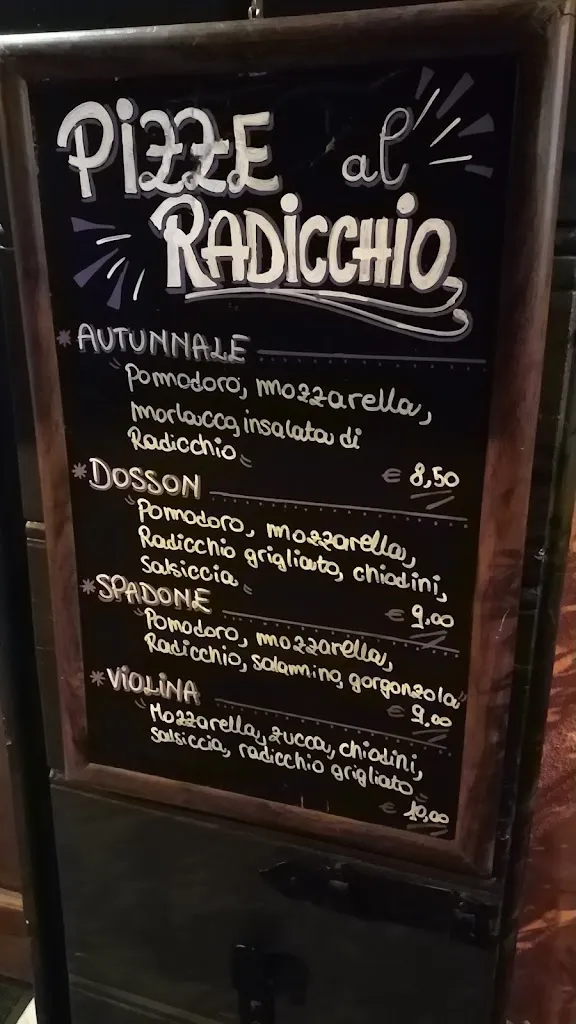 PIZZE al
RADICCHIO
* AUTUNNALE
"Pomodoro, mozzarella,
morlacco, insalata di
Radicchio"
€ 8,50
* DOSSON
"Pomodoro, mozzarella,
Radicchio grigliato, chiodini,
Salsiccia"
€ 9,00
* SPADONE
"Pomodoro, mozzarella,
Radicchio, salamino, gorgonzola"
€ 9,00
* VIOLINA
"Mozzarella, zucca, chiodini,
salsiccia, radicchio grigliato"
€ 10,00